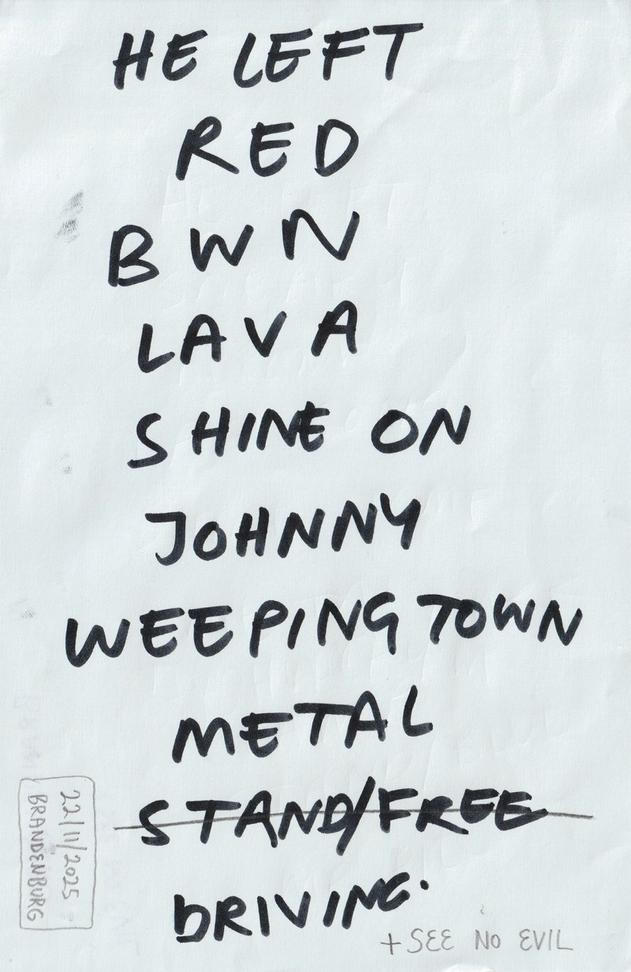 HE LEFT
RED
BWN
LAVA
SHINE ON
JOHNNY
WEEPING TOWN
METAL
STAND/FREE
DRIVING.
+ SEE NO EVIL
22/11/2025
BRANDENBURG